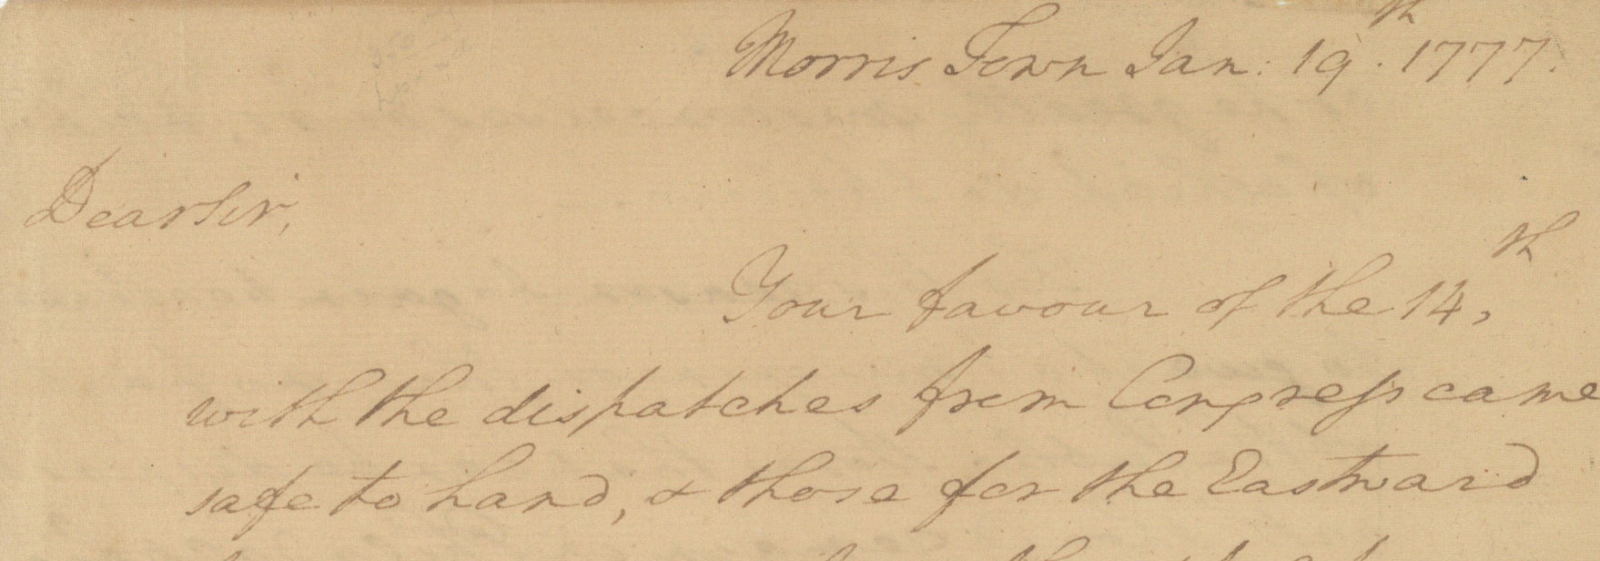 Morris Town Jan: 19th. 1777.
Dear Sir,
Your favour of the 14th,
with the dispatches from Congress came
safe to hand, & those for the Eastward